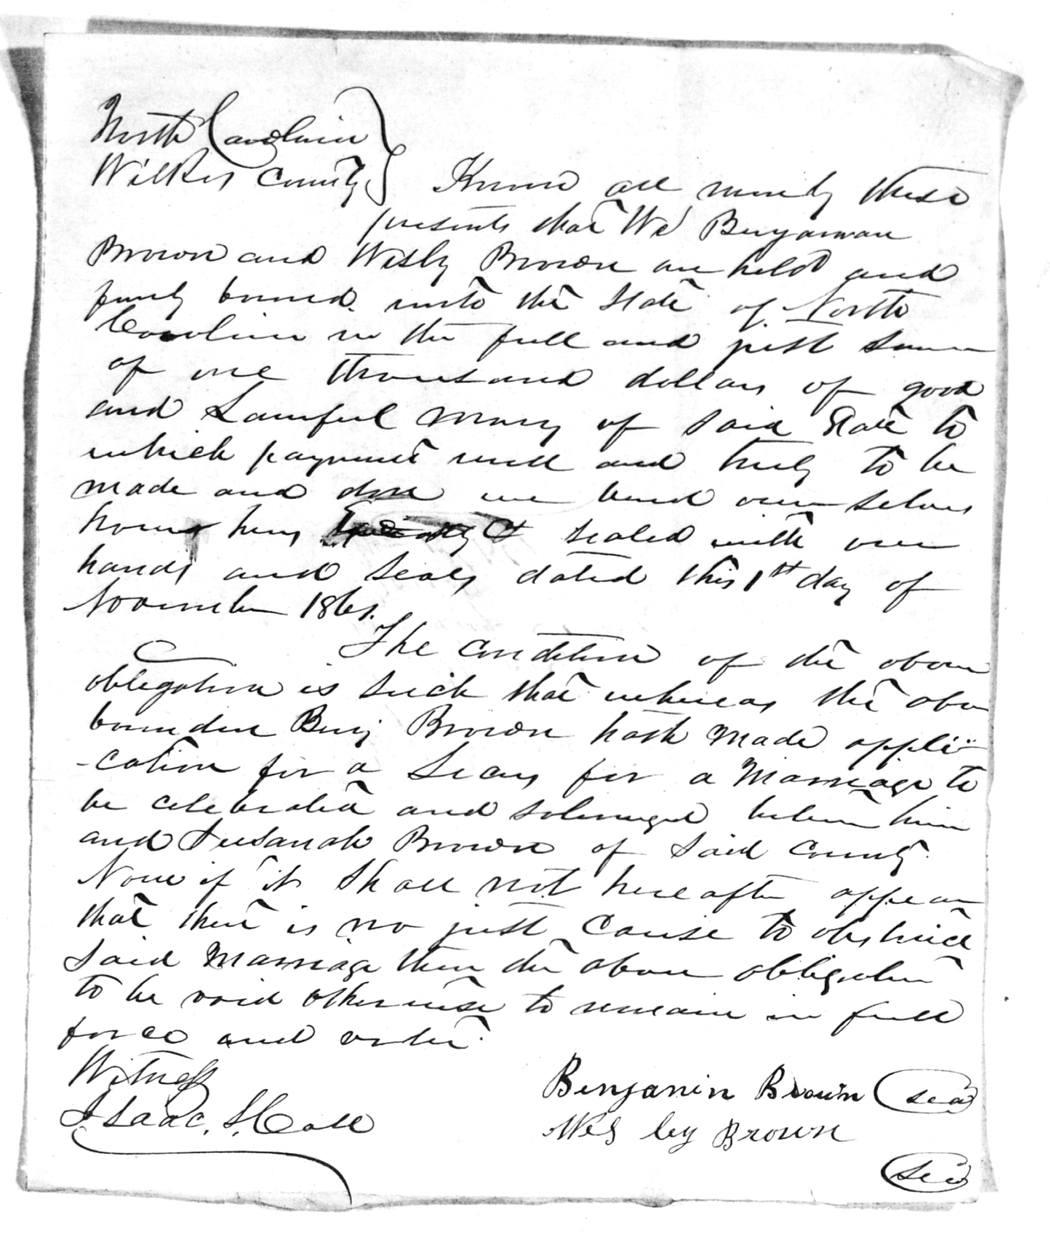 North Carolina
Wilkes County } Know all men by these
presents that We Benjaman
Brown and Wesly Brown are held and
firmly bound unto the State of North
Carolina in the full and just sum
of one thousand dollars of good
and Lawful money of said State to
which payment well and truly to be
made and done we bind our selves
hands and seals dated this 1st day of
November 1861.
The condition of the above
obligation is such that whereas the abov
bounden Benj Brown hath made appli-
-cation for a for a Marriage to
be celebrated and between him
and Susanah Brown of said County.
Now if it shall not hereafter appear
that there is no just Cause to obstruct
said Marriage then the above obligation
to be void otherwise to remain in full
force and
Witness
Isaac S. Call
Benjamin Brown seal
Wesley Brown
seal